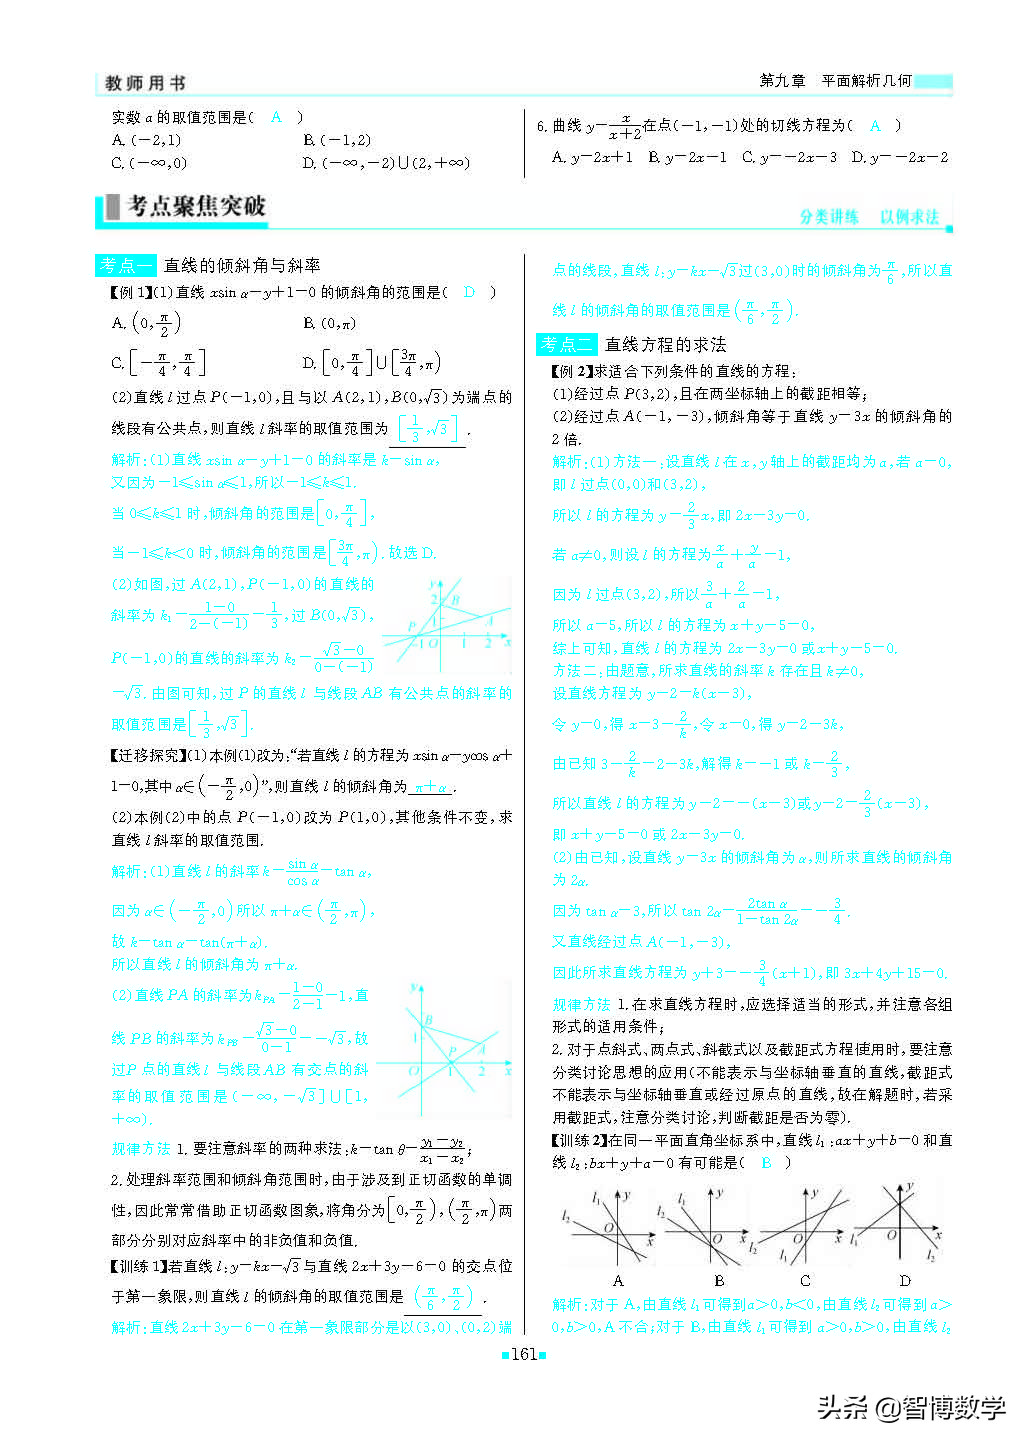 教师用书
第九章 平面解析几何
实数 a 的取值范围是( A )
A. (－2,1) B. (－1,2)
C. (－∞,0) D. (－∞,－2)∪(2,＋∞)
6. 曲线 y＝x/(x＋2)在点(－1,－1)处的切线方程为( A )
A. y＝2x＋1 B. y＝2x－1 C. y＝－2x－3 D. y＝－2x－2
考点聚焦突破
分类讲练 以例求法
考点一 直线的倾斜角与斜率
【例 1】(1)直线 xsin α－y＋1＝0 的倾斜角的范围是( D )
A. (0,π/2) B. (0,π)
C. [－π/4,π/4] D. [0,π/4]∪[3π/4,π)
(2)直线 l 过点 P(－1,0),且与以 A(2,1),B(0,√3)为端点的
线段有公共点,则直线 l 斜率的取值范围为 [1/3,√3] .
解析:(1)直线 xsin α－y＋1＝0 的斜率是 k＝sin α,
又因为－1≤sin α≤1,所以－1≤k≤1.
当 0≤k≤1 时,倾斜角的范围是[0,π/4],
当－1≤k<0 时,倾斜角的范围是[3π/4,π). 故选 D.
(2)如图,过 A(2,1),P(－1,0)的直线的
斜率为 k₁＝(1－0)/(2－(－1))＝1/3,过 B(0,√3),
P(－1,0)的直线的斜率为 k₂＝(√3－0)/(0－(－1))
＝√3. 由图可知,过 P 的直线 l 与线段 AB 有公共点的斜率的
取值范围是[1/3,√3].
y 2 B 1 A P －1 O 1 2 x
【迁移探究】(1)本例(1)改为:“若直线 l 的方程为 xsin α－ycos α＋
1＝0,其中 α∈(－π/2,0)”,则直线 l 的倾斜角为 π＋α .
(2)本例(2)中的点 P(－1,0)改为 P(1,0),其他条件不变,求
直线 l 斜率的取值范围.
解析:(1)直线 l 的斜率 k＝sin α/cos α＝tan α,
因为 α∈(－π/2,0)所以 π＋α∈(π/2,π),
故 k＝tan α＝tan(π＋α).
所以直线 l 的倾斜角为 π＋α.
(2)直线 PA 的斜率为 kPA＝(1－0)/(2－1)＝1,直
线 PB 的斜率为 kPB＝(√3－0)/(0－1)＝－√3,故
过P 点的直线 l 与线段 AB 有交点的斜
率的取值范围是(－∞,－√3]∪[1,
＋∞).
y B 1 P A O 1 2 x
规律方法 1. 要注意斜率的两种求法:k＝tan θ＝(y₁－y₂)/(x₁－x₂);
2. 处理斜率范围和倾斜角范围时,由于涉及到正切函数的单调
性,因此常常借助正切函数图象,将角分为[0,π/2),(π/2,π)两
部分分别对应斜率中的非负值和负值.
【训练 1】若直线 l:y＝kx－√3与直线 2x＋3y－6＝0 的交点位
于第一象限,则直线 l 的倾斜角的取值范围是 (π/6,π/2) .
解析:直线2x＋3y－6＝0 在第一象限部分是以(3,0)、(0,2)端
点的线段,直线 l:y＝kx－√3过(3,0)时的倾斜角为π/6,所以直
线 l 的倾斜角的取值范围是(π/6,π/2).
考点二 直线方程的求法
【例 2】求适合下列条件的直线的方程:
(1)经过点 P(3,2),且在两坐标轴上的截距相等;
(2)经过点 A(－1,－3),倾斜角等于直线 y＝3x 的倾斜角的
2 倍.
解析:(1)方法一:设直线 l 在 x,y 轴上的截距均为 a,若 a＝0,
即 l 过点(0,0)和(3,2),
所以 l 的方程为 y＝2/3 x,即 2x－3y＝0.
若 a≠0,则设 l 的方程为x/a＋y/a＝1,
因为 l 过点(3,2),所以3/a＋2/a＝1,
所以 a＝5,所以 l 的方程为 x＋y－5＝0,
综上可知,直线 l 的方程为 2x－3y＝0 或x＋y－5＝0.
方法二:由题意,所求直线的斜率 k 存在且 k≠0,
设直线方程为 y－2＝k(x－3),
令 y＝0,得 x＝3－2/k,令 x＝0,得 y＝2－3k,
由已知 3－2/k＝2－3k,解得 k＝－1 或 k＝2/3,
所以直线 l 的方程为 y－2＝－(x－3)或 y－2＝2/3(x－3),
即 x＋y－5＝0 或 2x－3y＝0.
(2)由已知,设直线 y＝3x 的倾斜角为 α,则所求直线的倾斜角
为 2α.
因为 tan α＝3,所以 tan 2α＝2tan α/(1－tan 2α)＝－3/4.
又直线经过点 A(－1,－3),
因此所求直线方程为 y＋3＝－3/4(x＋1),即 3x＋4y＋15＝0.
规律方法 1. 在求直线方程时,应选择适当的形式,并注意各组
形式的适用条件;
2. 对于点斜式、两点式、斜截式以及截距式方程使用时,要注意
分类讨论思想的应用(不能表示与坐标轴垂直的直线,截距式
不能表示与坐标轴垂直或经过原点的直线,故在解题时,若采
用截距式,注意分类讨论,判断截距是否为零).
【训练 2】在同一平面直角坐标系中,直线 l₁:ax＋y＋b＝0 和直
线 l₂:bx＋y＋a＝0 有可能是( B )
l₁ y l₂ O x
l₁ y l₂ O x
y O x l₂ l₁
y O x l₁ l₂
A B C D
解析:对于 A,由直线 l₁ 可得到a>0,b<0,由直线 l₂ 可得到 a>
0,b>0,A 不合;对于 B,由直线 l₁ 可得到 a>0,b>0,由直线 l₂
161
头条 @智博数学